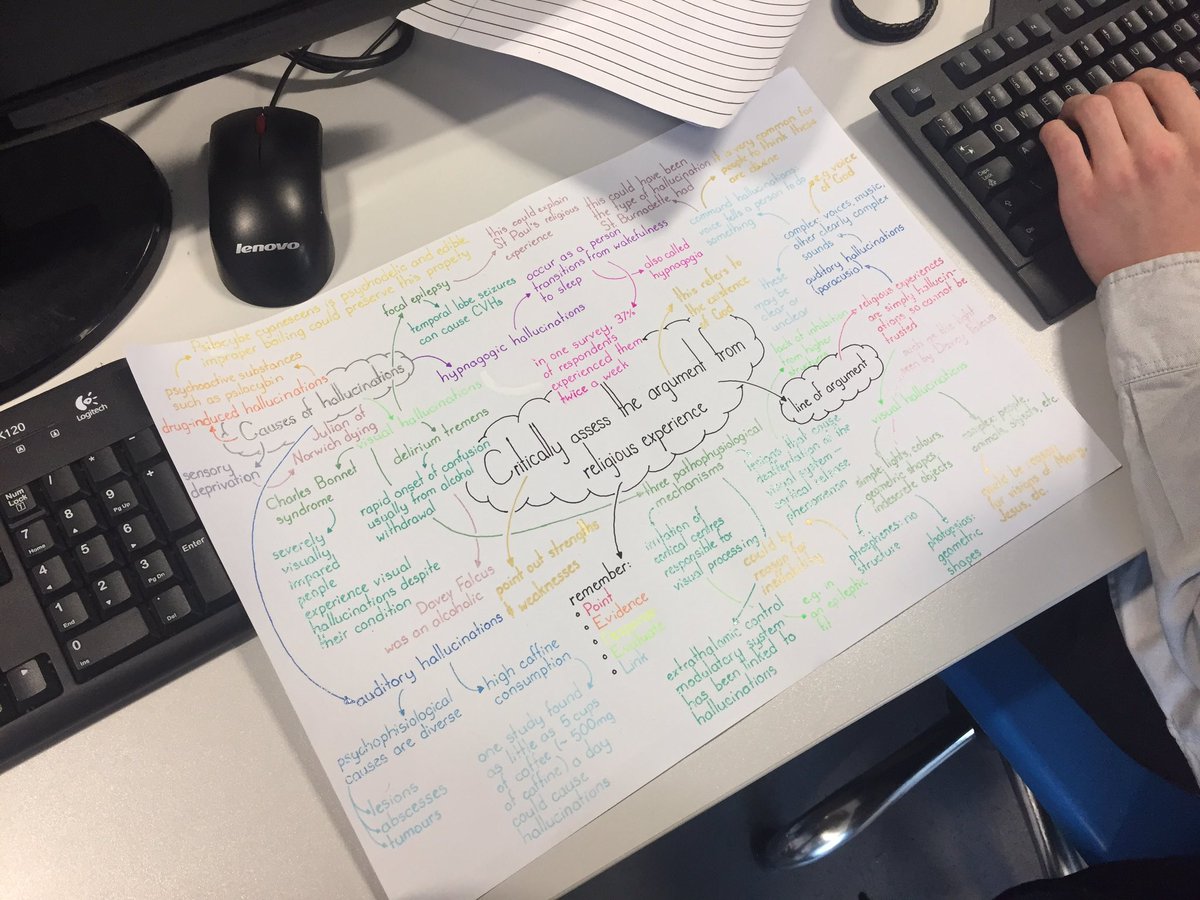 Critically assess the argument from
religious experience
this refers to
the existence
of God
line of argument
religious experiences
are simply hallucin-
ations so cannot be
trusted
Causes of hallucinations
drug-induced hallucinations
psychoactive substances
such as psilocybin
Psilocybe cyanescens is psychadelic and edible
improper boiling could preserve this property
sensory
deprivation
Julian of
Norwich dying
focal epilepsy
this could explain
St Paul's religious
experience
temporal lobe seizures
can cause CVHs
hypnagogic hallucinations
occur as a person
transitions from wakefulness
to sleep
also called
hypnagogia
in one survey, 37%
of respondents
experienced them
twice a week
this could have been
the type of hallucination
St. Bernadette had
it is very common for
people to think these
are divine
command hallucinations:
voice tells a person to do
something
e.g. voice
of God
complex: voices, music,
other clearly complex
sounds
auditory hallucinations
(paracusia)
these
may be
clear or
unclear
visual hallucinations
such as the light
seen by Davey Falcus
simple: lights, colours,
geometric shapes,
indiscrete objects
complex: people,
animals, sights, etc.
could be reason
for visions of Mary,
Jesus, etc.
phosphenes: no
structure
photopsias:
geometric
shapes
visual hallucinations
Charles Bonnet
syndrome
severely
visually
impared
people
experience visual
hallucinations despite
their condition
delirium tremens
rapid onset of confusion
usually from alcohol
withdrawal
Davey Falcus
was an alcoholic
three pathophysiological
mechanisms
irritation of
cortical centres
responsible for
visual processing
e.g. in
an epileptic
fit
lesions that cause
deafferentation of the
visual system —
cortical release
phenomenon
could be
reason for
lack of inhibition
from higher
extrathalamic control
modulatory system
has been linked to
hallucinations
point out strengths
& weaknesses
remember:
• Point
• Evidence
• Evaluate
• Link
auditory hallucinations
psychophisiological
causes are diverse
lesions
abscesses
tumours
high caffine
consumption
one study found
as little as 5 cups
of coffee (~500mg
of caffine) a day
could cause
hallucinations
lenovo
Logitech
K120
Num
Lock
/
*
-
+
7
Home
8
9
Pg Up
4
5
6
1
End
2
3
Pg Dn
Enter
0
Ins
.
Del
Esc
Q
W
E
R
Caps
Lock
A